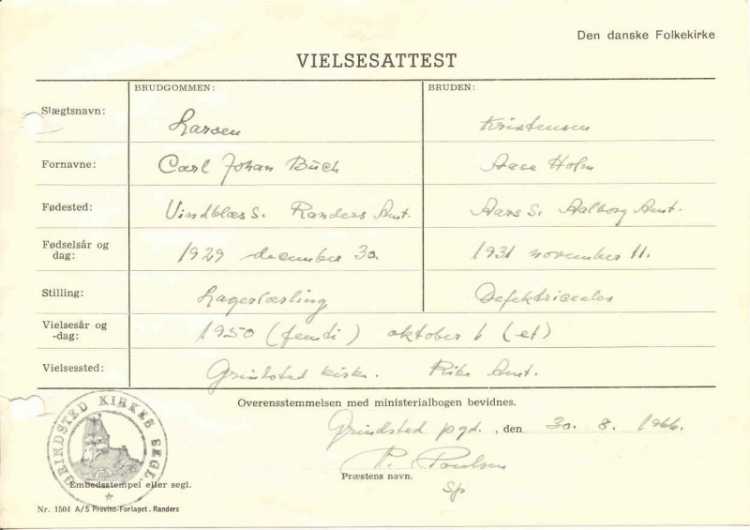 Den danske Folkekirke
VIELSESATTEST
BRUDGOMMEN: BRUDEN:
Slægtsnavn: Larsen Kristensen
Fornavne: Carl Johan Büch Holm
Fødested: Vindblæs S. Randers Amt. Aars S. Aalborg Amt.
Fødselsår og
dag: 1929 december 30. 1931 november 11.
Stilling:
Vielsesår og
-dag: 1950 ( ) oktober 6 (et)
Vielsessted: Grindsted kirke. Ribe Amt.
Overensstemmelsen med ministerialbogen bevidnes.
Grindsted pgd., den 30. 8. 1966.
P. Poulsen
Præstens navn.
Sp
GRINDSTED KIRKES SEGL.
Embedsstempel eller segl.
Nr. 1504 A/S Provins-Forlaget, Randers